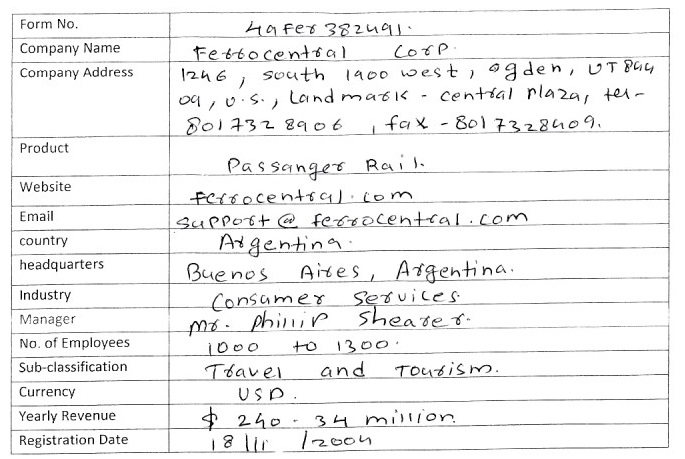 Form No. 49Fer382491.
Company Name Ferrocentral Corp.
Company Address 1246, south 1900 west, ogden, UT 844
09, U.S., Landmark - central plaza, tel-
801 732 8906, fax - 801 7328409.
Product Passanger Rail.
Website ferrocentral.com
Email support@ferrocentral.com
country Argentina.
headquarters Buenos Aires, Argentina.
Industry Consumer Services.
Manager Mr. Phillip Shearer.
No. of Employees 1000 to 1300.
Sub-classification Travel and Tourism.
Currency USD.
Yearly Revenue $ 240.34 million.
Registration Date 18/11/2004